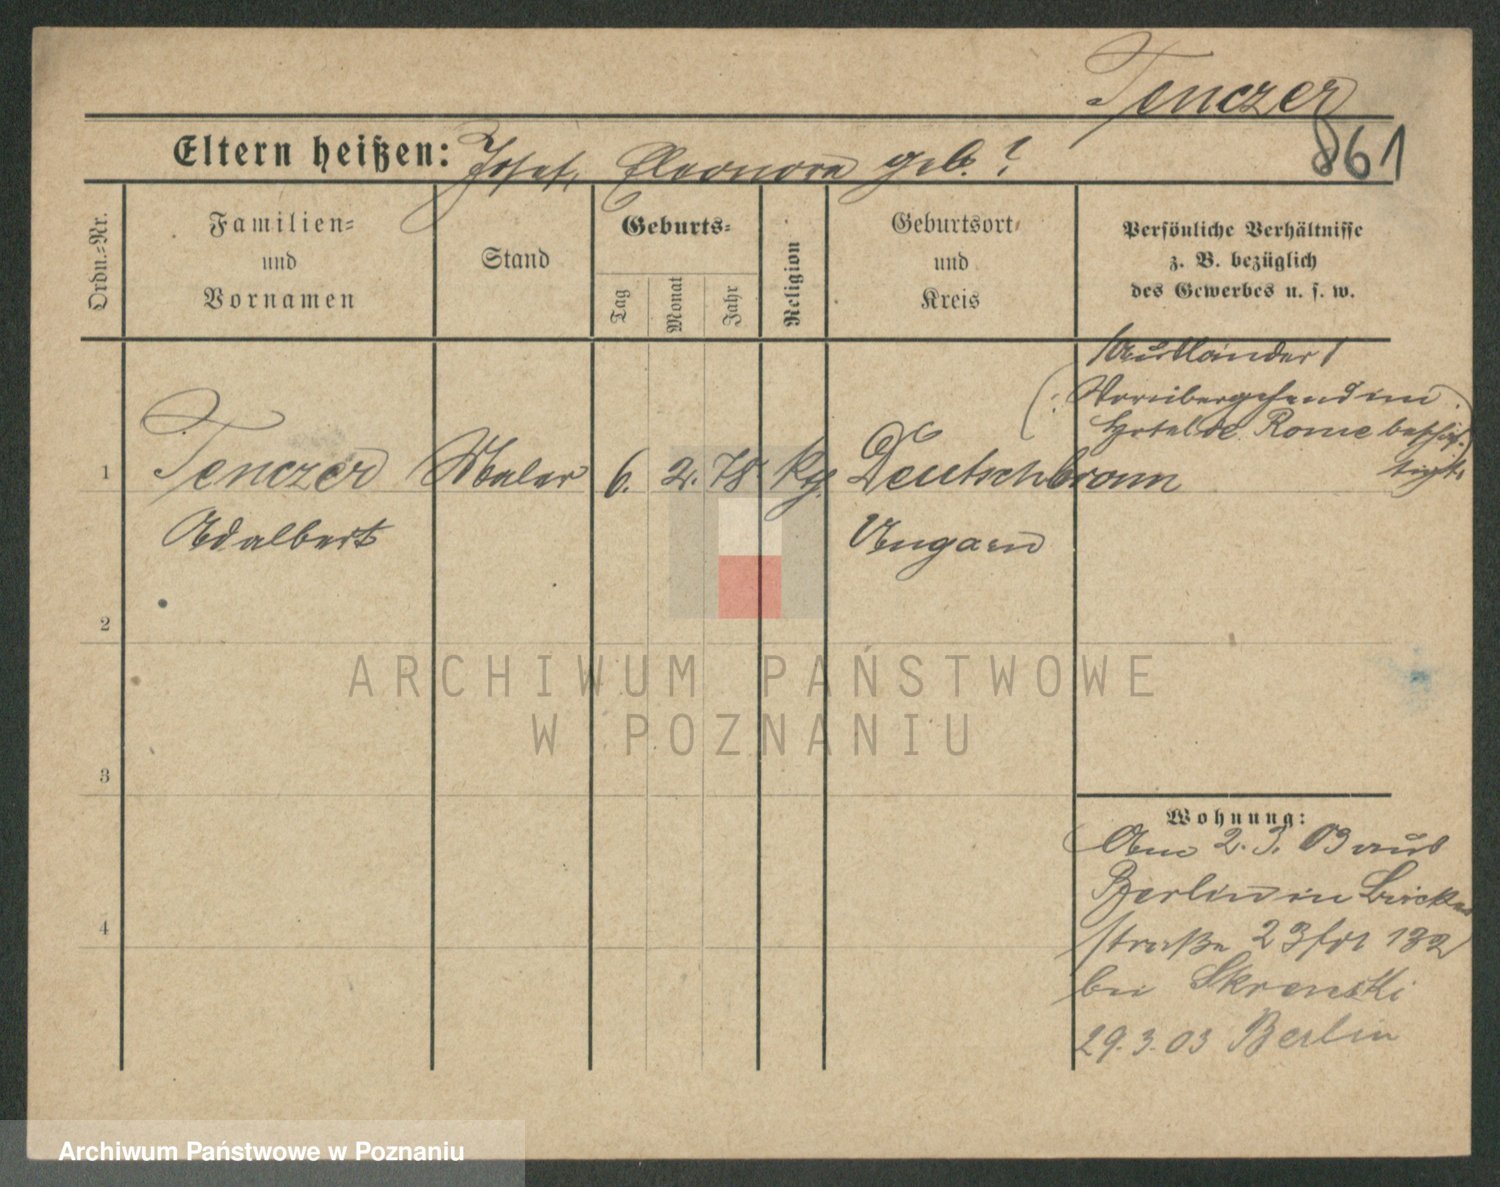 Tenczer
861
Eltern heißen: Josef, Eleonora geb. ?
Ordn.=Nr.
Familien=
und
Vornamen
Stand
Geburts=
Tag
Monat
Jahr
Religion
Geburtsort
und
Kreis
Persönliche Verhältnisse
z. B. bezüglich
des Gewerbes u. s. w.
/Ausländer/
(: Vorübergehend im
Hotel de Rome beschäf-
tigt. :)
1 Tenczer Maler 6. 2. 78. Kth. Deutschbronn
Adalbert Ungarn
2
3
4
Wohnung:
Am 2. 3. 03 aus
Berlin in
straße 23 fol 132
bei Skronski
29. 3. 03 Berlin
ARCHIWUM PAŃSTWOWE
W POZNANIU
Archiwum Państwowe w Poznaniu